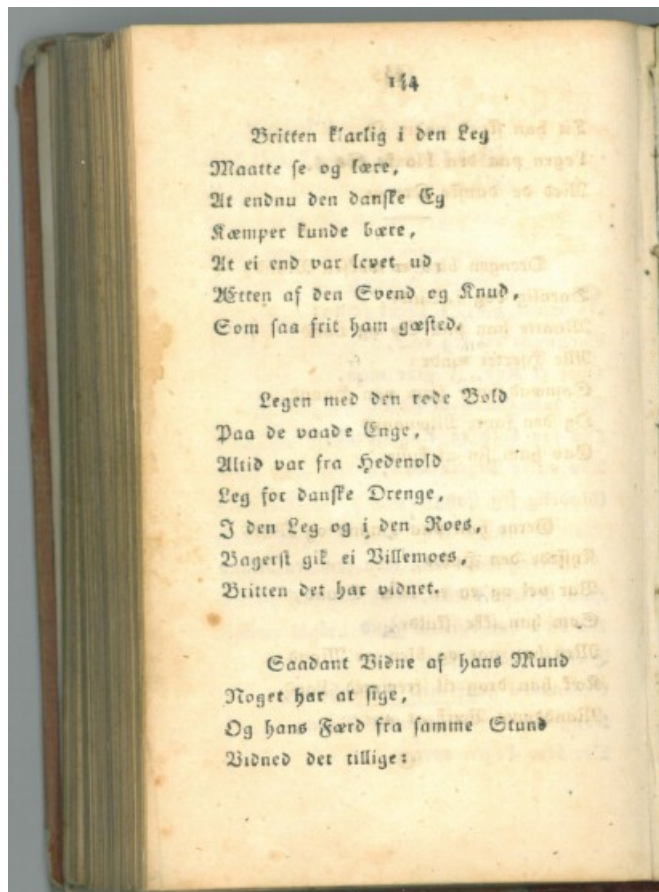 144
Britten klarlig i den Leg
Maatte se og lære,
At endnu den danske Eg
Kæmper kunde bære,
At ei end var levet ud
Ætten af den Svend og Knud,
Som saa frit ham gæsted.
Legen med den røde Bold
Paa de vaade Enge,
Altid var fra Hedenold
Leg for danske Drenge,
I den Leg og i den Roes,
Bagerst gik ei Villemoes,
Britten det har vidnet.
Saadant Vidne af hans Mund
Noget har at sige,
Og hans Færd fra samme Stund
Vidned det tillige: